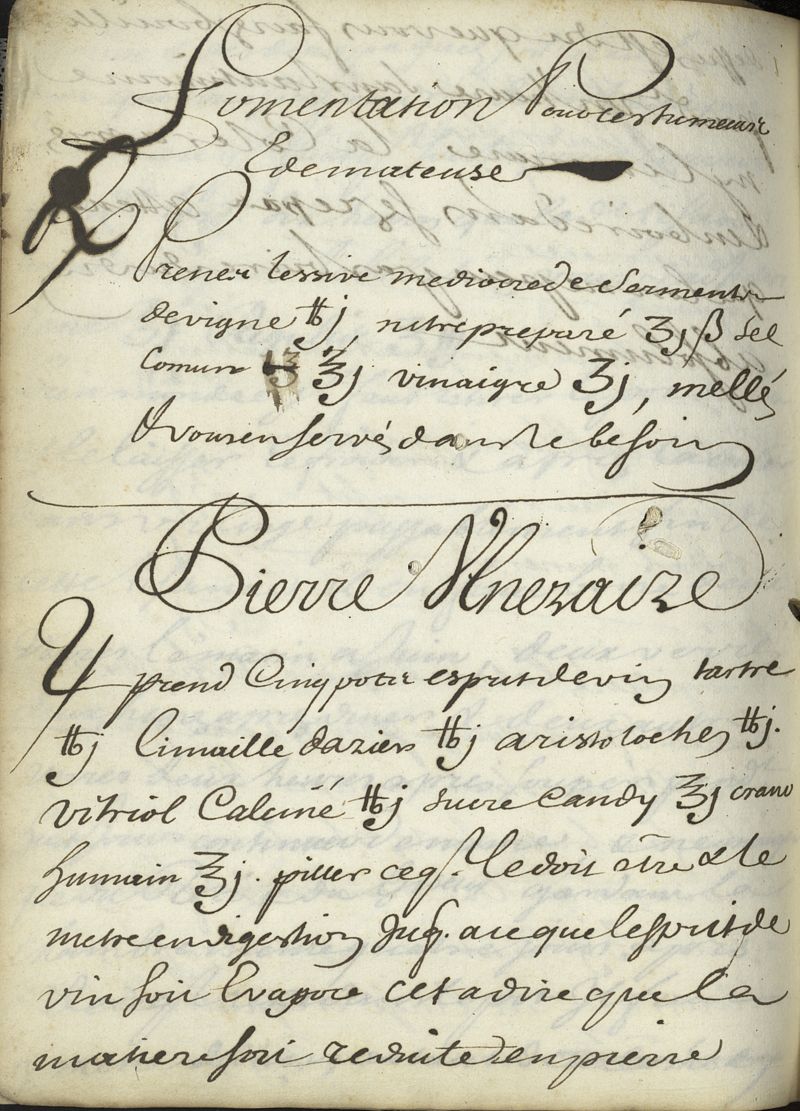 Fomentation Pour les tumeurs
Edemateuse
Prener lessive mediocre de Serments
de vigne ℔j nitre preparé ʒjß sel
Comun ℥j vinaigre ℥j, mellés
& vous en servés dans le besoin
Pierre Vnezaize
prend Cinq potir esprit de vin tartre
℔j limaille dazier ℔j aristoloches ℔j.
vitriol Calciné ℔j sucre candy ℥j crane
humain ℥j. piller ce q. le doit être & le
metre en digestion Jusq. a ce que lesprit de
vin soit Evapore cet a dire que la
matiere soit reduite en pierre